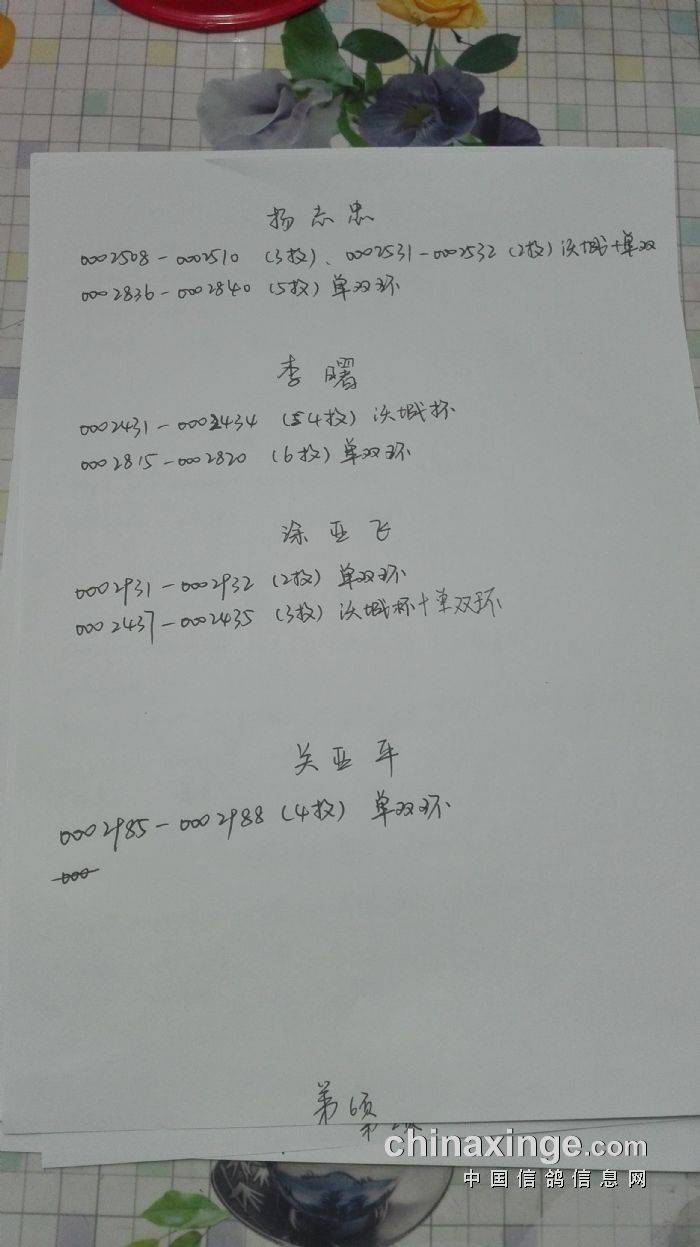 杨志忠
0002508-0002510 (3枚)、0002531-0002532 (2枚) 沃城+单双
0002836-0002840 (5枚) 单双环
李曙
0002431-0002434 (4枚) 沃城杯
0002815-0002820 (6枚) 单双环
涂亚飞
0002931-0002932 (2枚) 单双环
0002437-0002435 (3枚) 沃城杯+单双环
关亚军
0002985-0002988 (4枚) 单双环
000
第6页
chinaxinge.com
中国信鸽信息网